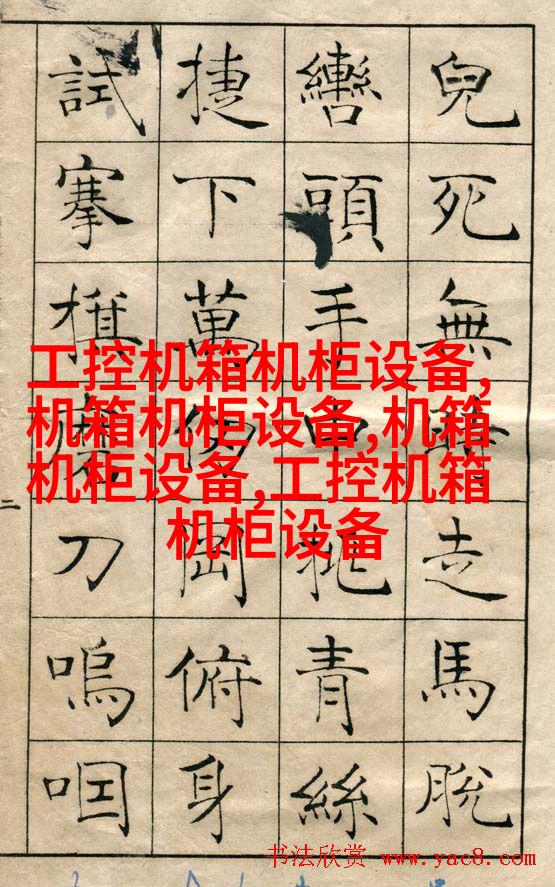 兒死無時走馬脫
轡頭手中挑青絲
捷下萬仞岡俯身
試搴旗磨刀嗚咽
二
工控机箱机柜设备,
机箱机柜设备,机箱
机柜设备,工控机箱
机柜设备
书法欣赏 www.yac8.com